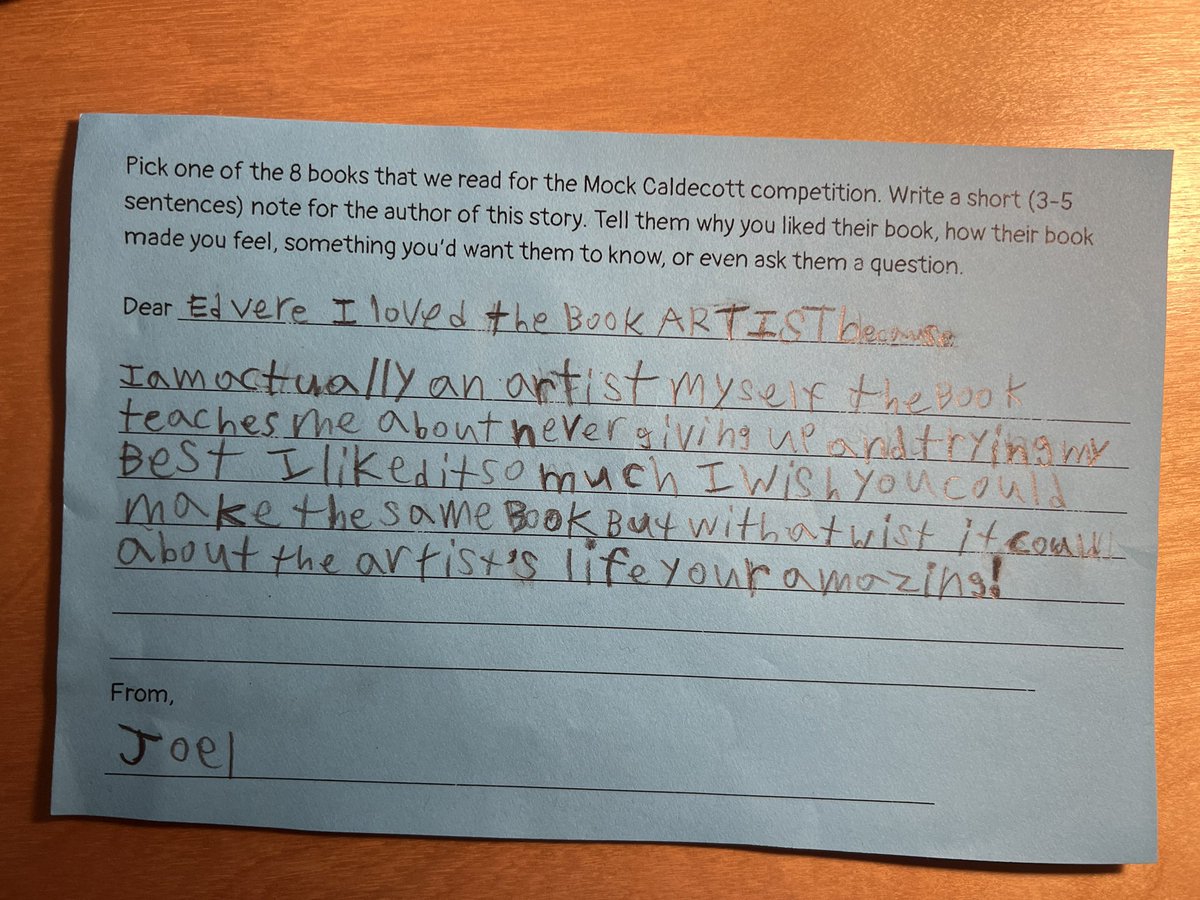 Pick one of the 8 books that we read for the Mock Caldecott competition. Write a short (3-5
sentences) note for the author of this story. Tell them why you liked their book, how their book
made you feel, something you'd want them to know, or even ask them a question.
Dear Ed vere I loved the Book ARTIST because
I am actually an artist myself the Book
teaches me about never giving up and trying my
Best I liked it so much I wish you could
make the same Book But with a twist it could
about the artist's life your amazing!
From,
Joel